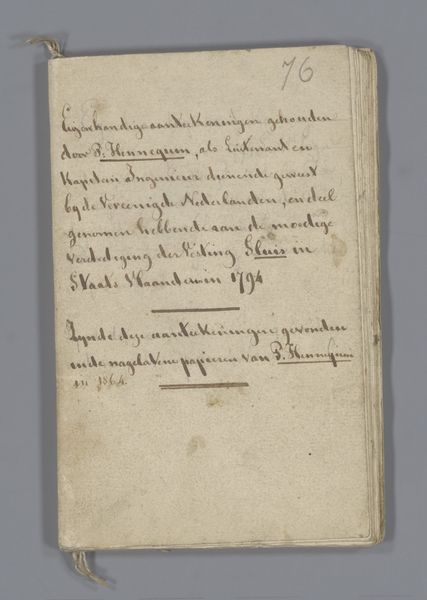 76
Eigenhandige aanteekeningen gehouden
door P. Hennequin, als Luitenant en
Kapitein Ingenieur dienende geweest
by de Vereenigde Nederlanden, en deel
genomen hebbende aan de moedige
verdediging der Vesting Sluis in
Staats Vlaanderen in 1794
Zynde deze aanteekeningen gevonden
in de nagelatene papieren van P. Hennequin
in 1864.